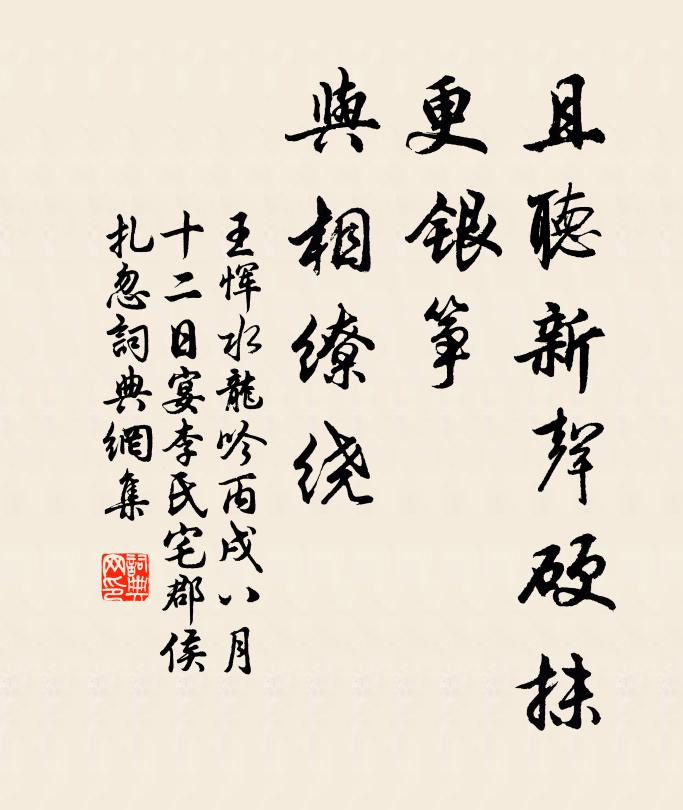 且聽新聲硬抹
更銀箏
與相繚绕
王惲水龍吟丙戌八月
十二日宴李氏宅郡侯
扎忽詞典網集
詞典网印